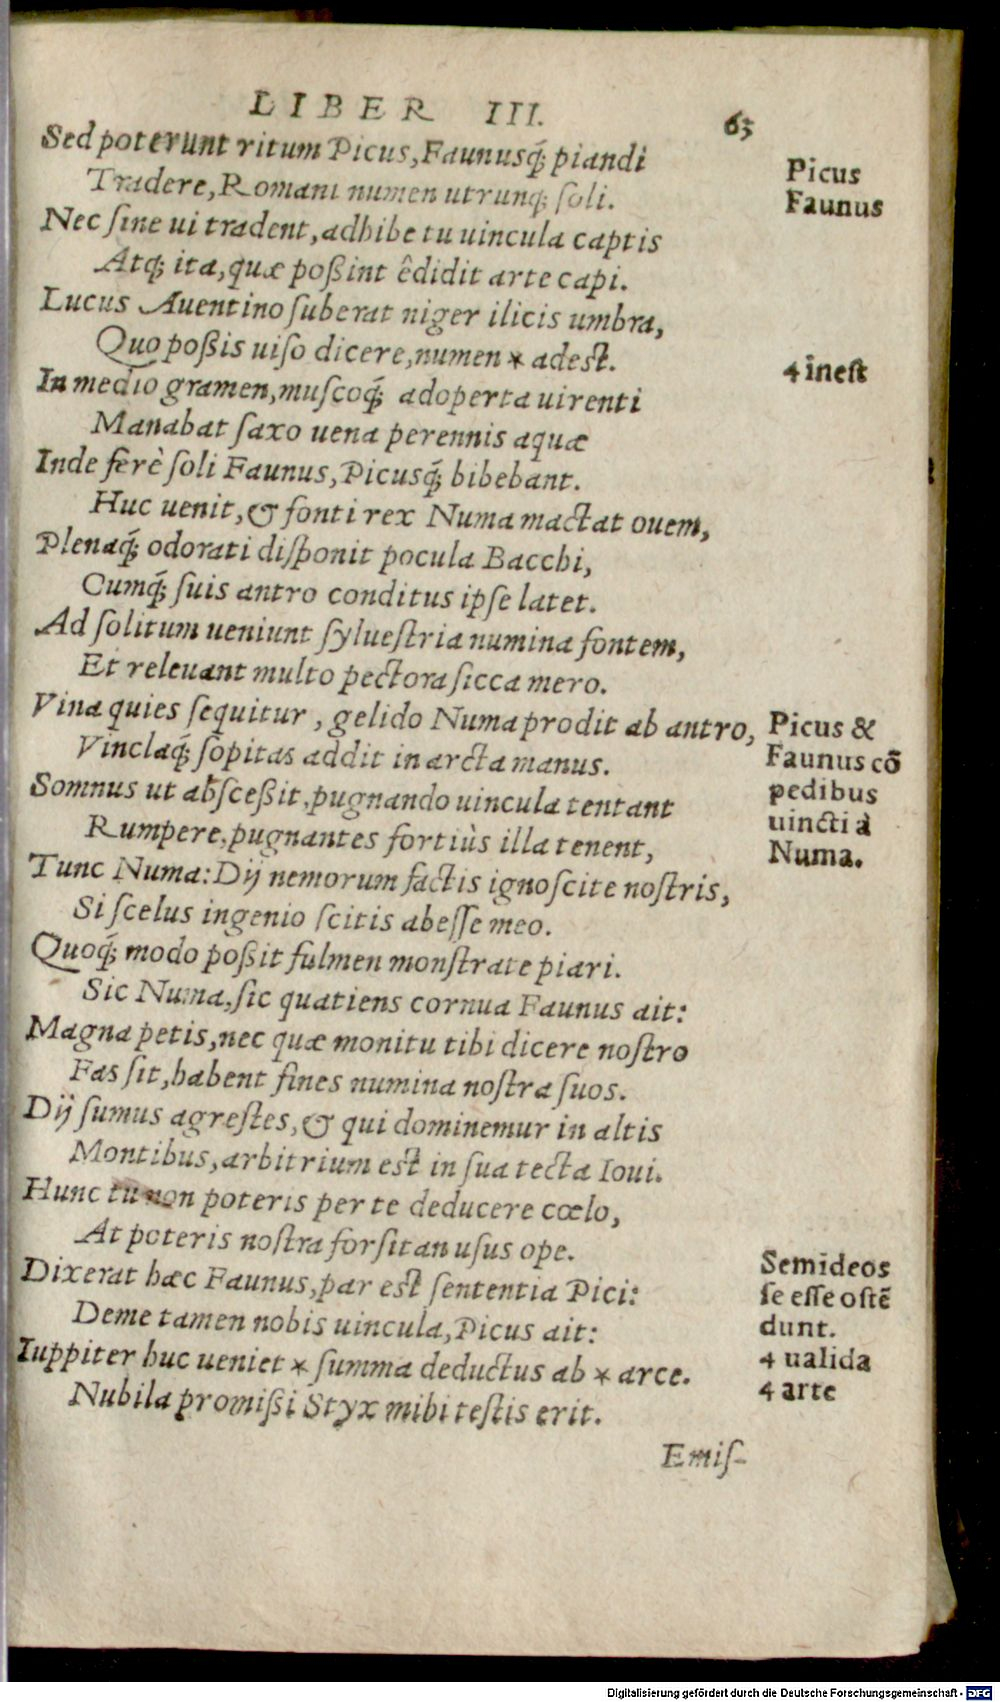 LIBER III.
63
Sed poterunt ritum Picus, Faunusq́; piandi
Tradere, Romani numen utrunq; ſoli.
Picus
Faunus
Nec ſine ui tradent, adhibe tu uincula captis
Atq́; ita, quæ poßint êdidit arte capi.
Lucus Auentino ſuberat niger ilicis umbra,
Quo poßis uiſo dicere, numen * adest.
4 inest
In medio gramen, muſcoq́; adoperta uirenti
Manabat ſaxo uena perennis aquæ
Inde ferè ſoli Faunus, Picusq́; bibebant.
Huc uenit, & fonti rex Numa mactat ouem,
Plenaq́; odorati diſponit pocula Bacchi,
Cumq́; ſuis antro conditus ipſe latet.
Ad ſolitum ueniunt ſylueſtria numina fontem,
Et releuant multo pectora ſicca mero.
Vina quies ſequitur, gelido Numa prodit ab antro,
Vinclaq́; ſopitas addit in arcta manus.
Picus &
Faunus cō
pedibus
uincti à
Numa.
Somnus ut abſceßit, pugnando uincula tentant
Rumpere, pugnantes fortiùs illa tenent,
Tunc Numa: Dij nemorum factis ignoſcite noſtris,
Si ſcelus ingenio ſcitis abeſſe meo.
Quoq́; modo poßit fulmen monſtrate piari.
Sic Numa, ſic quatiens cornua Faunus ait:
Magna petis, nec quæ monitu tibi dicere noſtro
Fas ſit, habent fines numina noſtra ſuos.
Dij ſumus agreſtes, & qui dominemur in altis
Montibus, arbitrium eſt in ſua tecta Ioui.
Hunc tu non poteris per te deducere cœlo,
At poteris noſtra forſitan uſus ope.
Dixerat hæc Faunus, par eſt ſententia Pici:
Deme tamen nobis uincula, Picus ait:
Semideos
ſe eſſe oſtē
dunt.
Iuppiter huc ueniet * ſumma deductus ab * arce.
Nubila promißi Styx mihi teſtis erit.
4 ualida
4 arte
Emiſ-
Digitalisierung gefördert durch die Deutsche Forschungsgemeinschaft - DFG